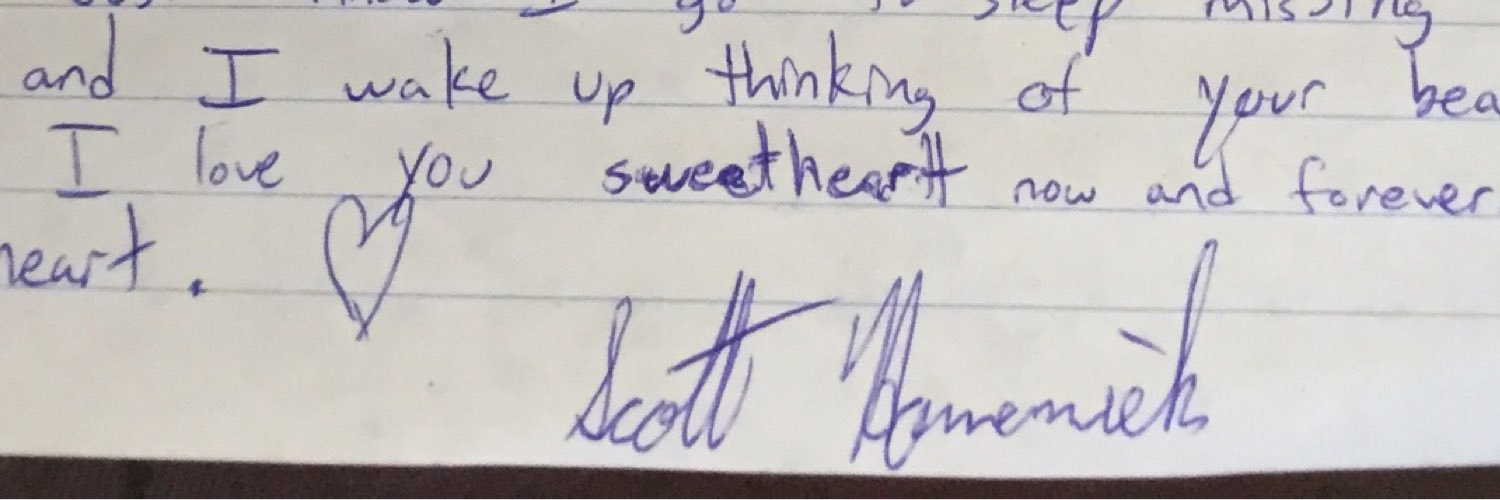 I go to sleep missing
and I wake up thinking of your bea
I love you sweetheartt now and forever
heart.
Scott